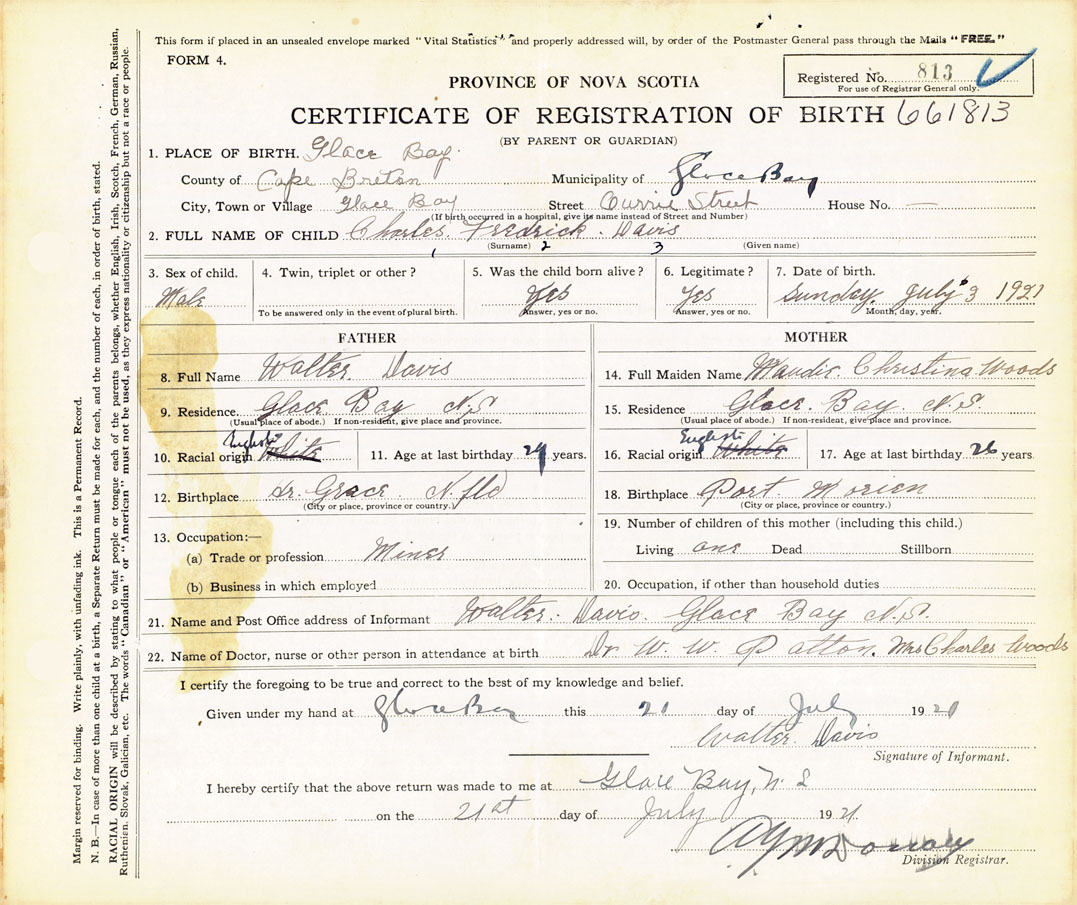 This form if placed in an unsealed envelope marked "Vital Statistics" and properly addressed will, by order of the Postmaster General pass through the Mails "FREE."
FORM 4.
Registered No. 813
For use of Registrar General only.
PROVINCE OF NOVA SCOTIA
CERTIFICATE OF REGISTRATION OF BIRTH 661813
(BY PARENT OR GUARDIAN)
1. PLACE OF BIRTH. Glace Bay.
County of Cape Breton Municipality of Glace Bay
City, Town or Village Glace Bay Street Currie Street House No. —
(If birth occurred in a hospital, give its name instead of Street and Number)
2. FULL NAME OF CHILD Charles Fredrick Davis
(Surname) (Given name)
1 2 3
3. Sex of child. Male
4. Twin, triplet or other?
To be answered only in the event of plural birth.
5. Was the child born alive? Yes
Answer, yes or no.
6. Legitimate? Yes
Answer, yes or no.
7. Date of birth. Sunday July 3 1921
Month, day, year.
FATHER
8. Full Name Walter Davis
9. Residence. Glace Bay N.S
(Usual place of abode.) If non-resident, give place and province.
10. Racial origin English White
11. Age at last birthday 29 years.
12. Birthplace Hr. Grace N.fld
(City or place, province or country.)
13. Occupation:—
(a) Trade or profession Miner
(b) Business in which employed
MOTHER
14. Full Maiden Name Maudie Christina Woods
15. Residence Glace Bay. N.S.
(Usual place of abode.) If non-resident, give place and province.
16. Racial origin English White
17. Age at last birthday 26 years
18. Birthplace Port Morien
(City or place, province or country.)
19. Number of children of this mother (including this child.)
Living one Dead Stillborn
20. Occupation, if other than household duties
21. Name and Post Office address of Informant Walter Davis Glace Bay N.S.
22. Name of Doctor, nurse or other person in attendance at birth Dr W. W. Patton. Mrs Charles Woods
I certify the foregoing to be true and correct to the best of my knowledge and belief.
Given under my hand at Glace Bay this 21 day of July 1921
Walter Davis
Signature of Informant.
I hereby certify that the above return was made to me at Glace Bay, N S
on the 21st day of July 1921.
Division Registrar.
Margin reserved for binding. Write plainly, with unfading ink. This is a Permanent Record.
N. B.—In case of more than one child at a birth, a Separate Return must be made for each, and the number of each, in order of birth, stated.
RACIAL ORIGIN will be described by stating to what people or tongue each of the parents belongs, whether English, Irish, Scotch, French, German, Russian,
Ruthenien, Slovak, Galician, etc. The words "Canadian" or "American" must not be used, as they express nationality or citizenship but not a race or people.